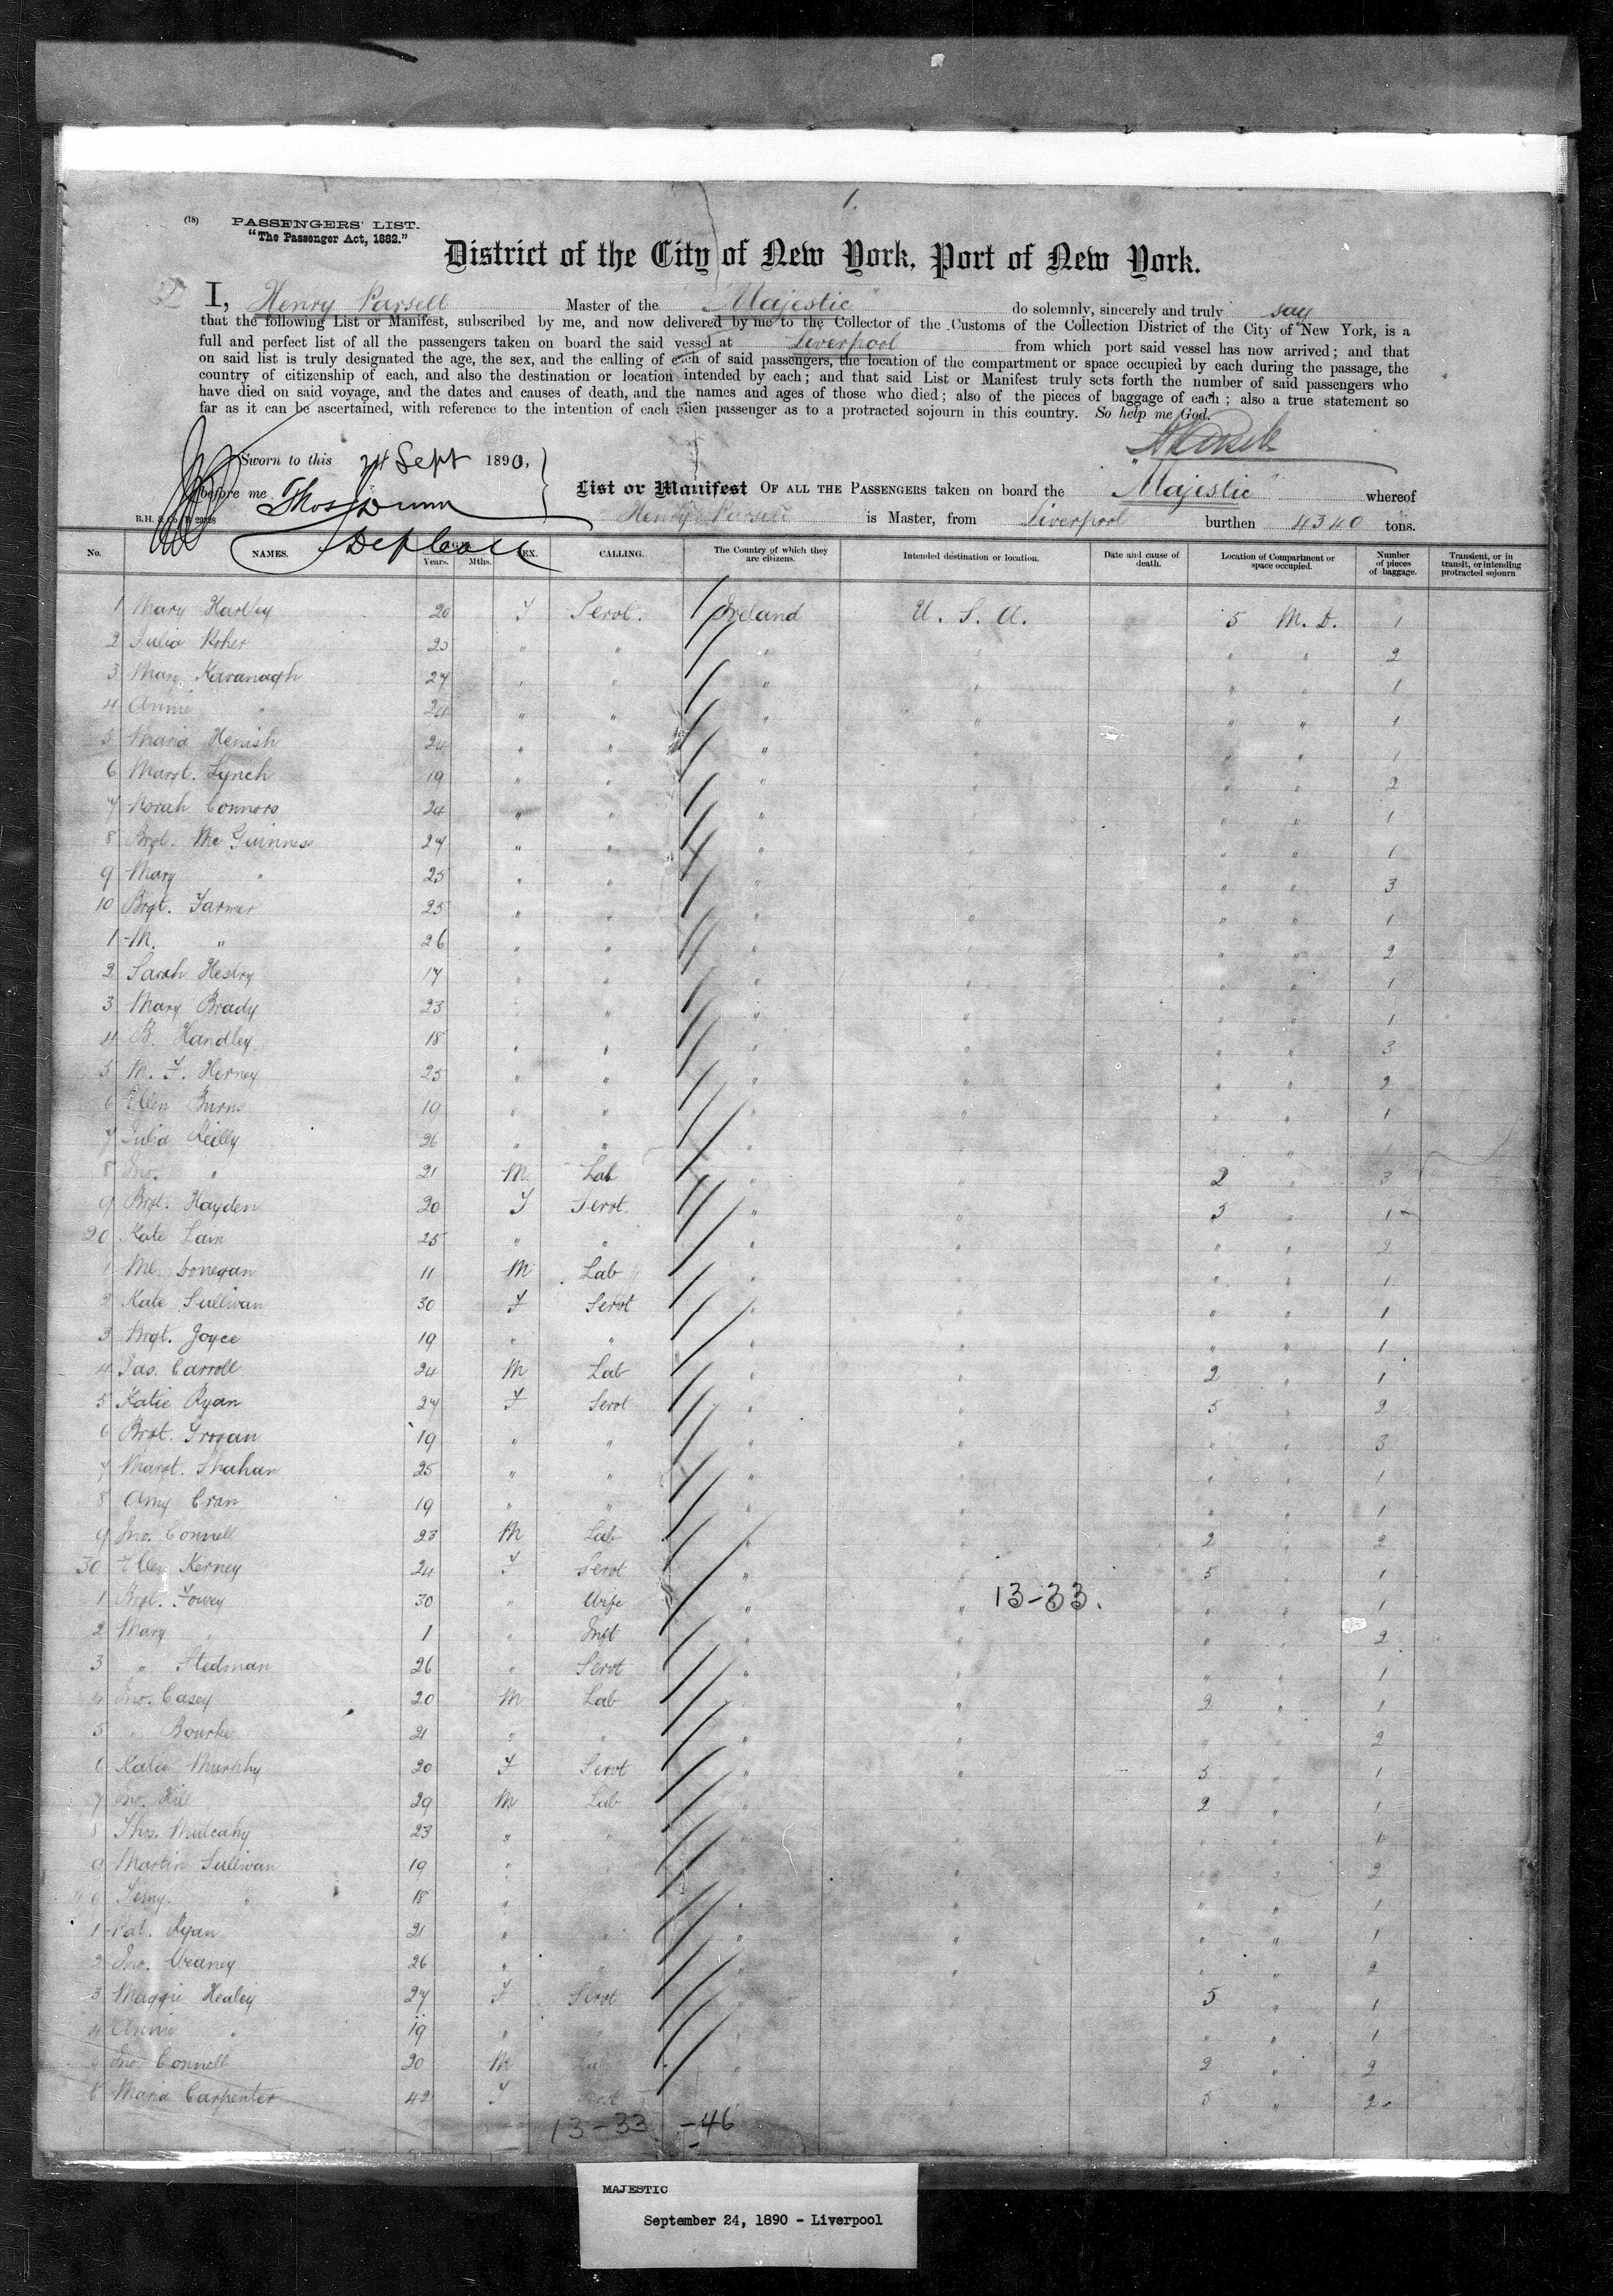 1.
(18) PASSENGERS' LIST.
"The Passenger Act, 1882."
District of the City of New York, Port of New York.
I, Henry Parsell Master of the "Majestic" do solemnly, sincerely and truly say
that the following List or Manifest, subscribed by me, and now delivered by me to the Collector of the Customs of the Collection District of the City of New York, is a
full and perfect list of all the passengers taken on board the said vessel at Liverpool from which port said vessel has now arrived; and that
on said list is truly designated the age, the sex, and the calling of each of said passengers, the location of the compartment or space occupied by each during the passage, the
country of citizenship of each, and also the destination or location intended by each; and that said List or Manifest truly sets forth the number of said passengers who
have died on said voyage, and the dates and causes of death, and the names and ages of those who died; also of the pieces of baggage of each; also a true statement so
far as it can be ascertained, with reference to the intention of each alien passenger as to a protracted sojourn in this country. So help me God.
Sworn to this 24 Sept 1890,
before me Thos Dunn
List or Manifest OF ALL THE PASSENGERS taken on board the "Majestic" whereof
Henry Parsell is Master, from Liverpool burthen 4340 tons.
No. NAMES. Years. Mths. SEX. CALLING. The Country of which they are citizens. Intended destination or location. Date and cause of death. Location of Compartment or space occupied. Number of pieces of baggage. Transient, or in transit, or intending protracted sojourn
1 Mary Hartley 20 F Servt. Ireland U. S. A. 5 M. D. 1
2 Julia 23 " " " " " " 2
3 Mary Kavanagh 27 " " " " " " 1
4 Annie " 24 " " " " " " 1
5 Maria Henish 24 " " " " " " 1
6 Margt. Lynch 19 " " " " " " 2
7 Norah Connors 24 " " " " " " 1
8 Brgt. Mc Guinness 27 " " " " " " 1
9 Mary " 25 " " " " " " 3
10 Brgt. Farmer 25 " " " " " " 1
1 M. " 26 " " " " " " 2
2 Sarah 17 " " " " " " 1
3 Mary Brady 23 " " " " " " 1
4 B. Handley 18 " " " " " " 3
5 M. F. Herney 25 " " " " " " 2
6 Ellen Burns 19 " " " " " " 1
7 Julia Reilly 26 " " " " " "
8 Jno. " 21 M Lab " " 2 " 3
9 Brgt. Hayden 20 F Servt. " " 5 " 1
20 Kate Lam 25 " " " " " " 2
1 Ml. Donegan 11 M Lab " " " " 1
2 Kate Sullivan 30 F Servt " " " " 1
3 Brgt. Joyce 19 " " " " " " 1
4 Jas. Carroll 24 M Lab " " 2 " 1
5 Katie Ryan 27 F Servt " " 5 " 2
6 Brgt. Grogan 19 " " " " " " 3
7 Margt. Shahan 25 " " " " " " 1
8 Amy Cran 19 " " " " " " 1
9 Jno. Connell 23 M Lab " " 2 " 2
30 Ellen Kerney 24 F Servt " " 5 " 1
1 Brgt. Fovey 30 " Wife " " 13-33. " " 1
2 Mary " 1 " Inft " " " " 2
3 " Stedman 26 " Servt " " " " 1
4 Jno. Casey 20 M Lab " " 2 " 1
5 " Bourke 21 " " " " " " 2
6 Katie Murphy 20 F Servt " " 5 " 1
7 Jno. Hill 29 M Lab " " 2 " 1
8 Thos. Mulcahy 23 " " " " " " 1
9 Martin Sullivan 19 " " " " " " 2
40 " 18 " " " " " " 1
1 Pat. Ryan 21 " " " " " " 1
2 Jno. 26 " " " " " " 2
3 Maggie Healey 27 F Servt " " 5 " 1
4 Annie " 19 " " " " " " 1
5 Jno. Connell 20 M Lab " " 2 " 2
6 Maria Carpenter 42 F " " 5 " 2
13-33 -46
MAJESTIC
September 24, 1890 - Liverpool